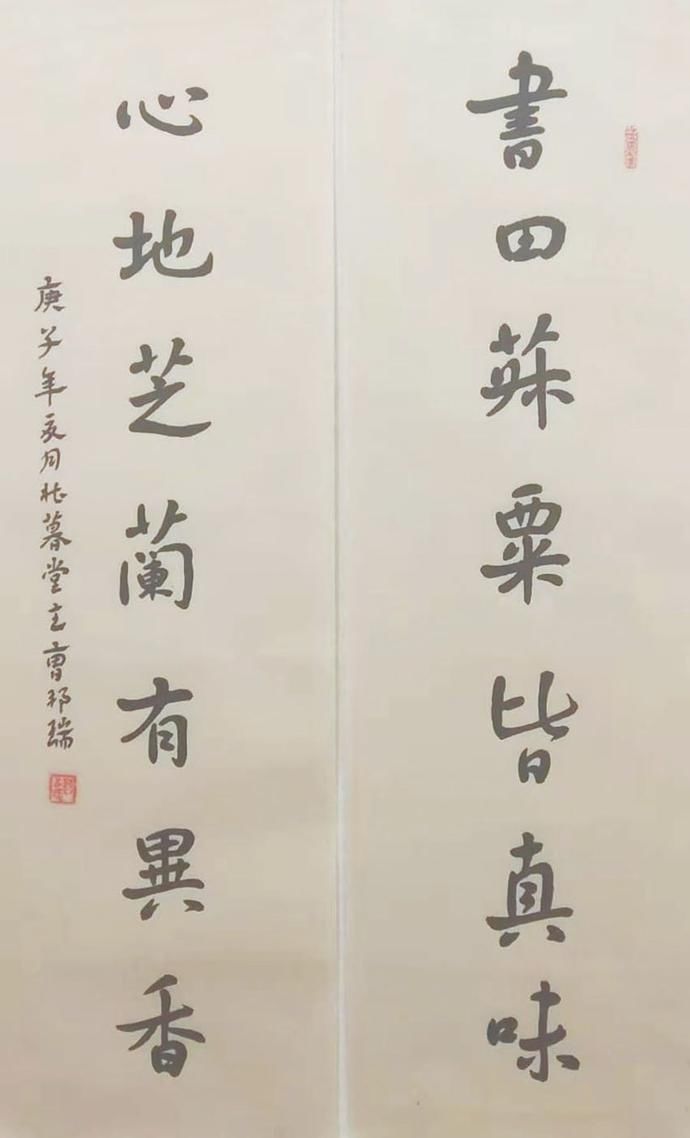 書田菽粟皆真味
心地芝蘭有異香
庚子年亥月 暮堂主曹邦瑞